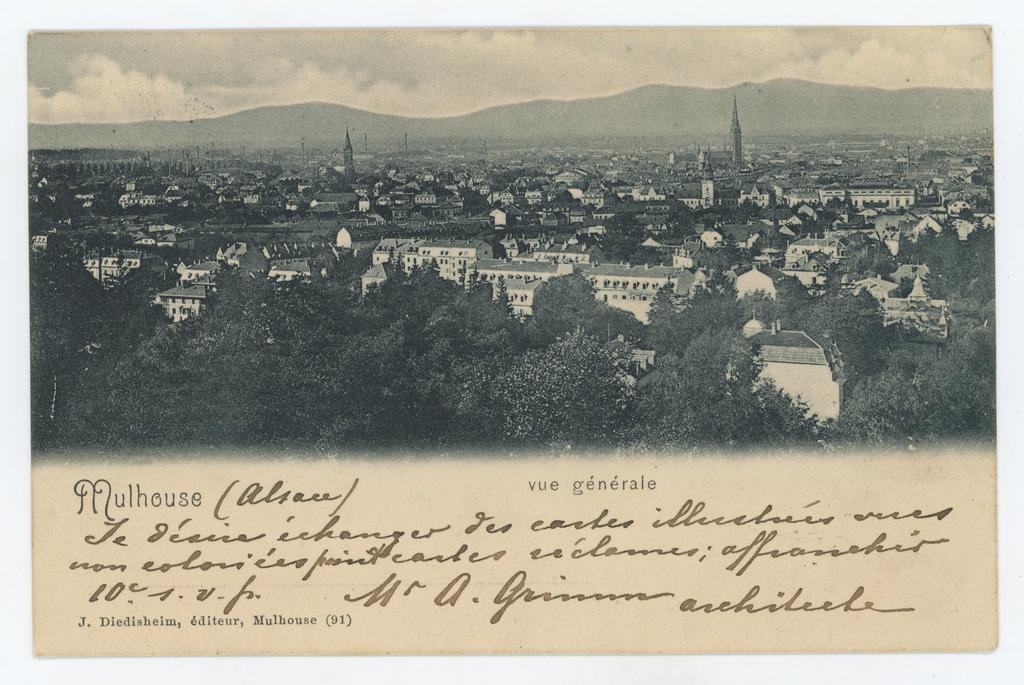 Mulhouse (Alsace)
vue générale
Je désire échanger des cartes illustrées vues
non coloriées point cartes réclames; affranchir
10c s. v. p. Mr A. Grimm architecte
J. Diedisheim, éditeur, Mulhouse (91)